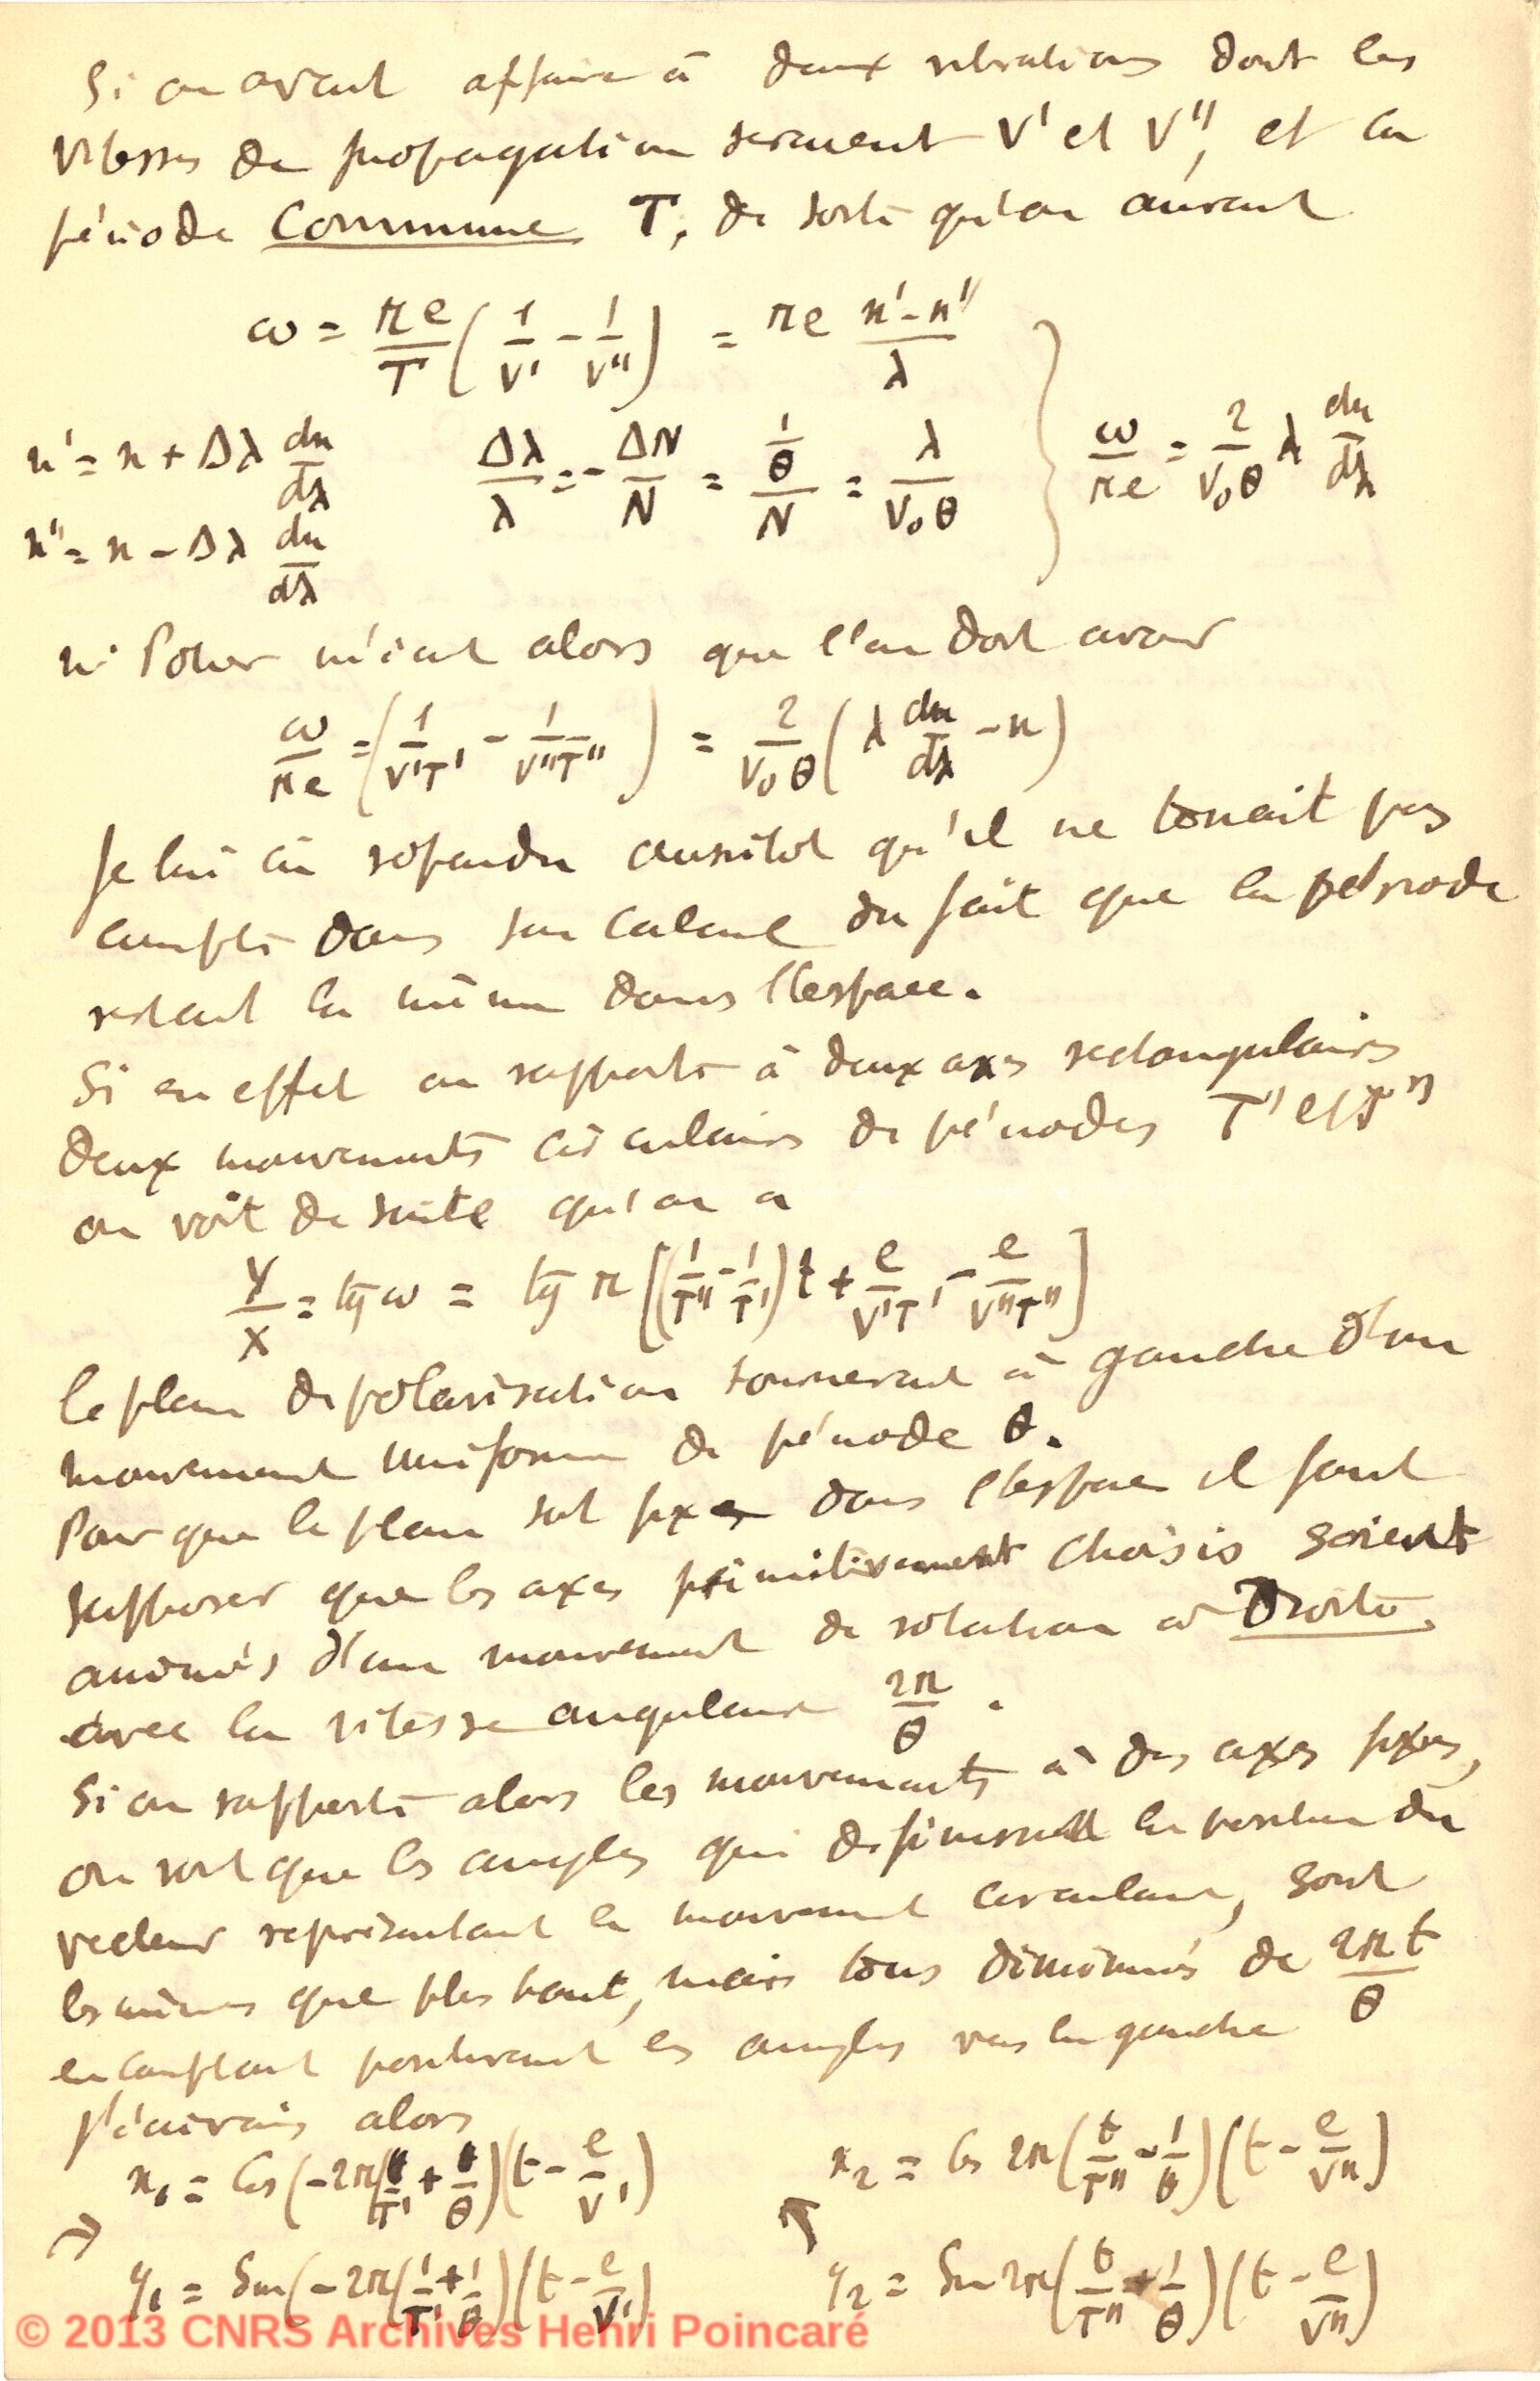 Si on avait affaire à deux vibrations dont les
vitesses de propagation seraient V' et V'', et la
période commune T, de sorte qu'on aurait
ω = πe/T (1/V' - 1/V'') = πe (n' - n'')/λ
n' = n + Δλ dn/dλ   Δλ/λ = - ΔN/N = (1/θ)/N = λ/(V₀θ)   } ω/πe = 2/(V₀θ) λ dn/dλ
n'' = n - Δλ dn/dλ
M. Potier m'écrit alors que l'on doit avoir
ω/πe = (1/V'T' - 1/V''T'') = 2/(V₀θ) (λ dn/dλ - n)
Je lui ai répondu aussitôt qu'il ne tenait pas
compte dans son calcul du fait que la période
restait la même dans l'espace.
Si en effet on rapporte à deux axes rectangulaires
deux mouvements circulaires de périodes T' et T''
on voit de suite qu'on a
Y/X = tg ω = tg π [(1/T'' - 1/T') t + e/V'T' - e/V''T'']
le plan de polarisation tournerait à gauche d'un
mouvement uniforme de période θ.
Pour que le plan soit fixe dans l'espace il faut
supposer que les axes primitivement choisis soient
animés d'un mouvement de rotation à droite
avec la vitesse angulaire 2π/θ.
Si on rapporte alors les mouvements à des axes fixes,
on voit que les angles qui définissent la position du
vecteur représentant le mouvement circulaire, sont
les mêmes que plus haut, mais tous diminués de 2πt/θ
en comptant positivement les angles vers la gauche
J'écrivais alors
x₁ = Cos (-2π(t/T' + t/θ)(t - e/V')   x₂ = Cos 2π(t/T'' - 1/θ)(t - e/V'')
y₁ = Sin (-2π(1/T' + 1/θ)(t - e/V')   y₂ = Sin 2π(t/T'' + 1/θ)(t - e/V'')
© 2013 CNRS Archives Henri Poincaré